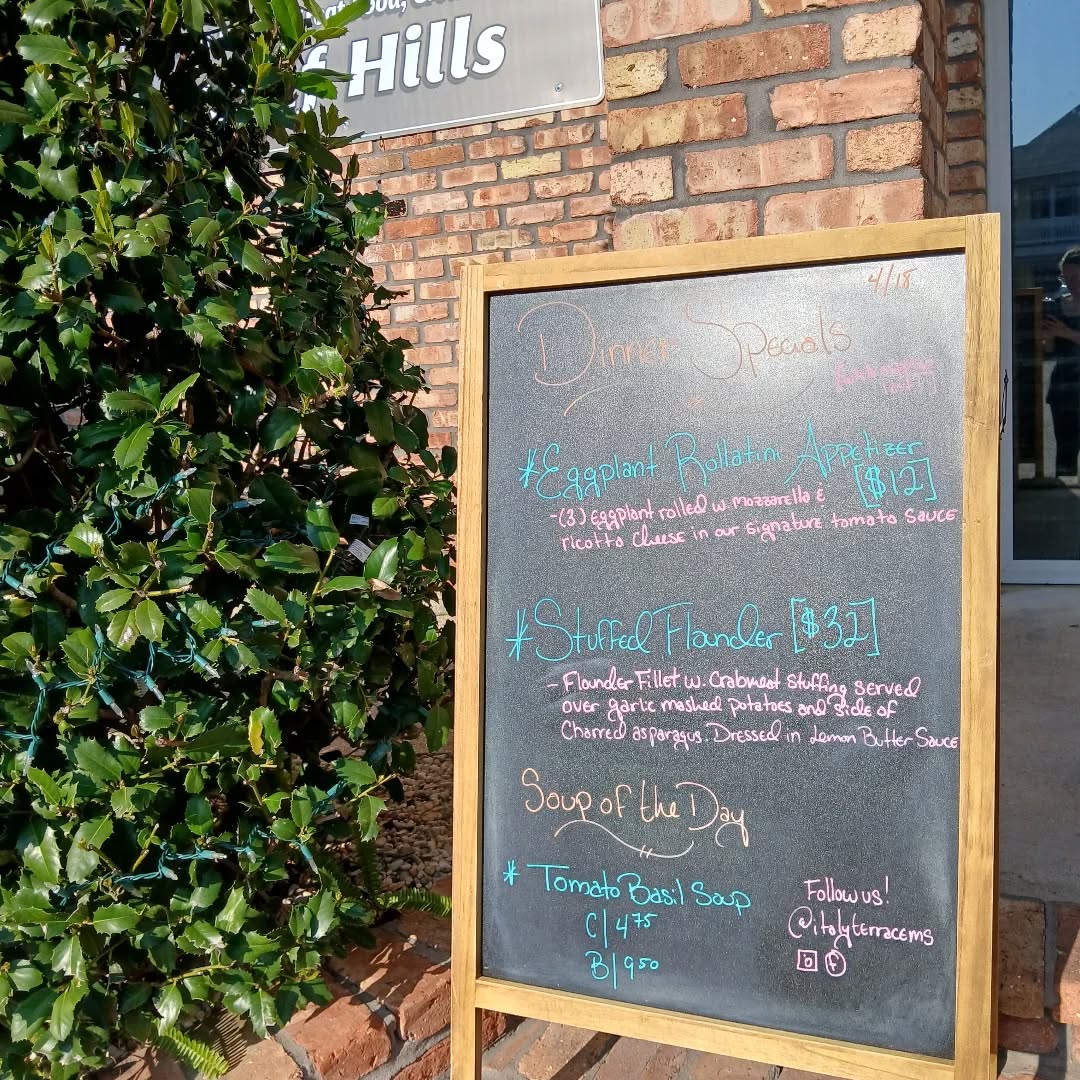 Hills
4/18
Dinner Specials
*Eggplant Rollatini Appetizer
[$12]
-(3) eggplant rolled w. mozzarella &
ricotta cheese in our signature tomato sauce
*Stuffed Flounder [$32]
- Flounder Fillet w. Crabmeat stuffing served
over garlic mashed potatoes and side of
Charred asparagus. Dressed in Lemon Butter Sauce
Soup of the Day
* Tomato Basil Soup
C/ 4 75
B/ 9 50
Follow us!
@italyterracems